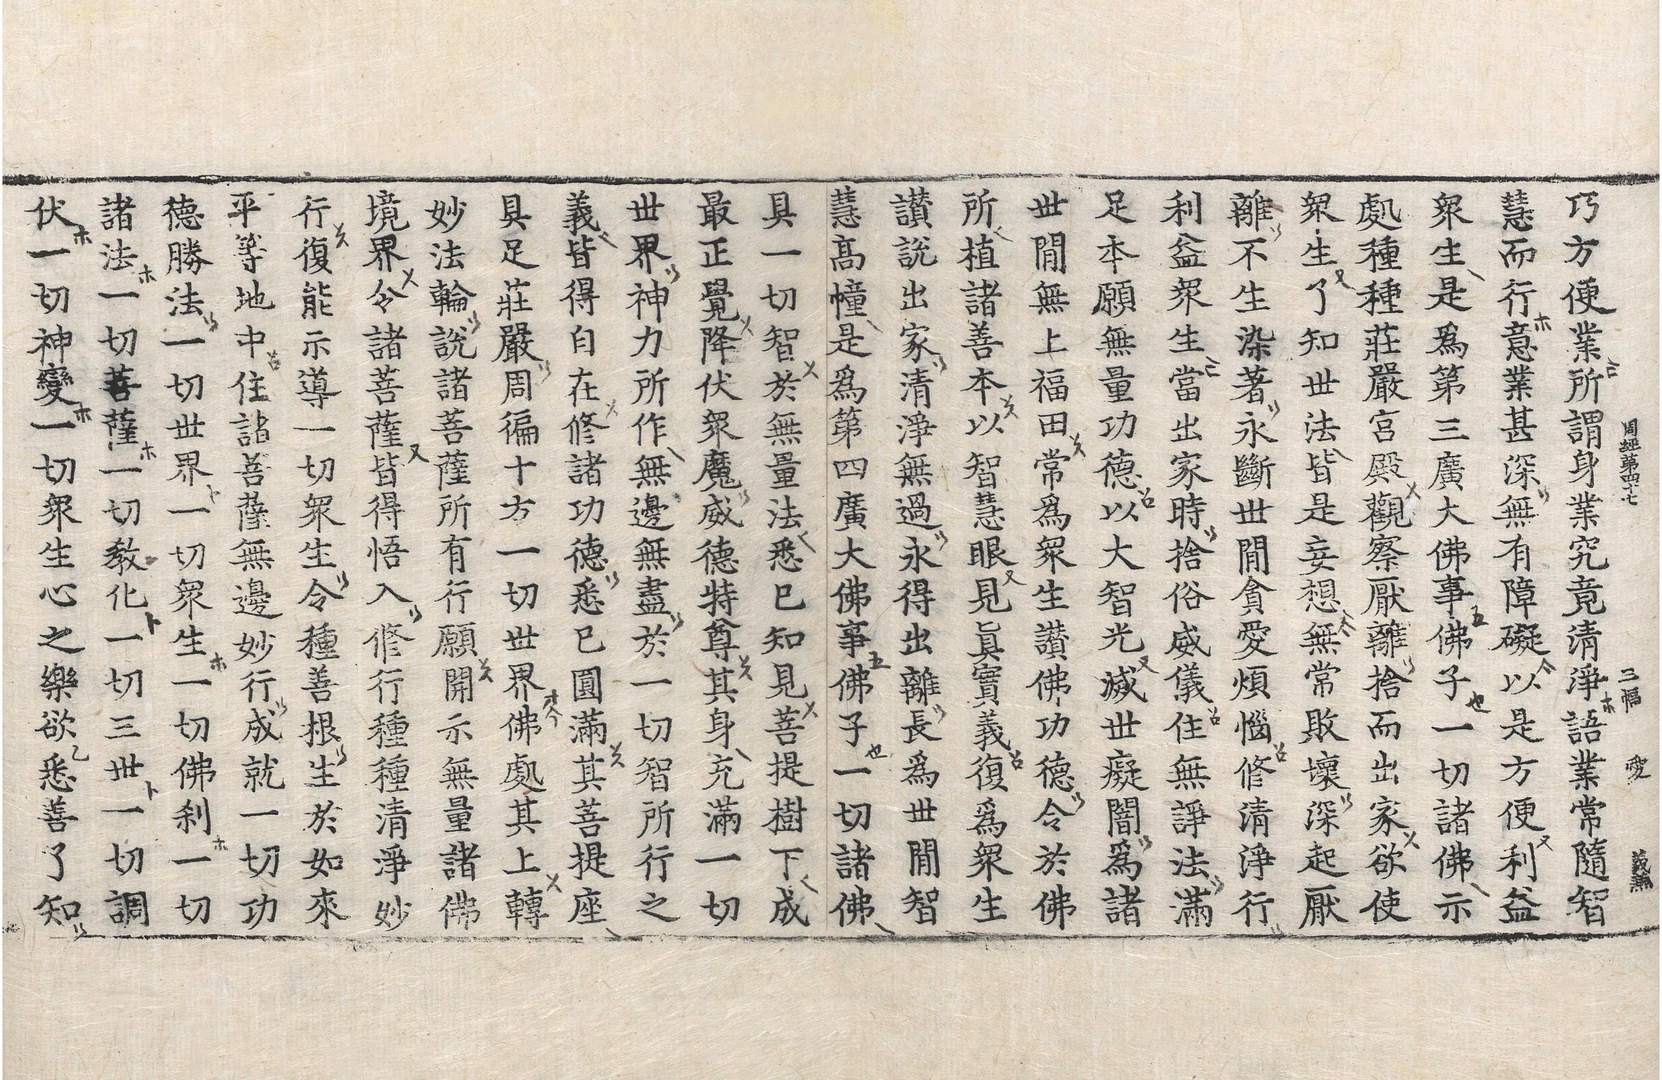 周經第四十七　三幅　愛　義熟
巧方便業所謂身業究竟清淨語業常隨智
慧而行意業甚深無有障礙以是方便利益
衆生是爲第三廣大佛事佛子一切諸佛示
處種種莊嚴宮殿觀察厭離捨而出家欲使
衆生了知世法皆是妄想無常敗壞深起厭
離不生染著永斷世間貪愛煩惱修清淨行
利益衆生當出家時捨俗威儀住無諍法滿
足本願無量功德以大智光滅世癡闇爲諸
世間無上福田常爲衆生讃佛功德令於佛
所植諸善本以智慧眼見眞實義復爲衆生
讃說出家清淨無過永得出離長爲世間智
慧高幢是爲第四廣大佛事佛子一切諸佛
具一切智於無量法悉已知見菩提樹下成
最正覺降伏衆魔威德特尊其身充滿一切
世界神力所作無邊無盡於一切智所行之
義皆得自在修諸功德悉已圓滿其菩提座
具足莊嚴周徧十方一切世界佛處其上轉
妙法輪說諸菩薩所有行願開示無量諸佛
境界令諸菩薩皆得悟入修行種種清淨妙
行復能示導一切衆生令種善根生於如來
平等地中住諸菩薩無邊妙行成就一切功
德勝法一切世界一切衆生一切佛刹一切
諸法一切菩薩一切教化一切三世一切調
伏一切神變一切衆生心之樂欲悉善了知